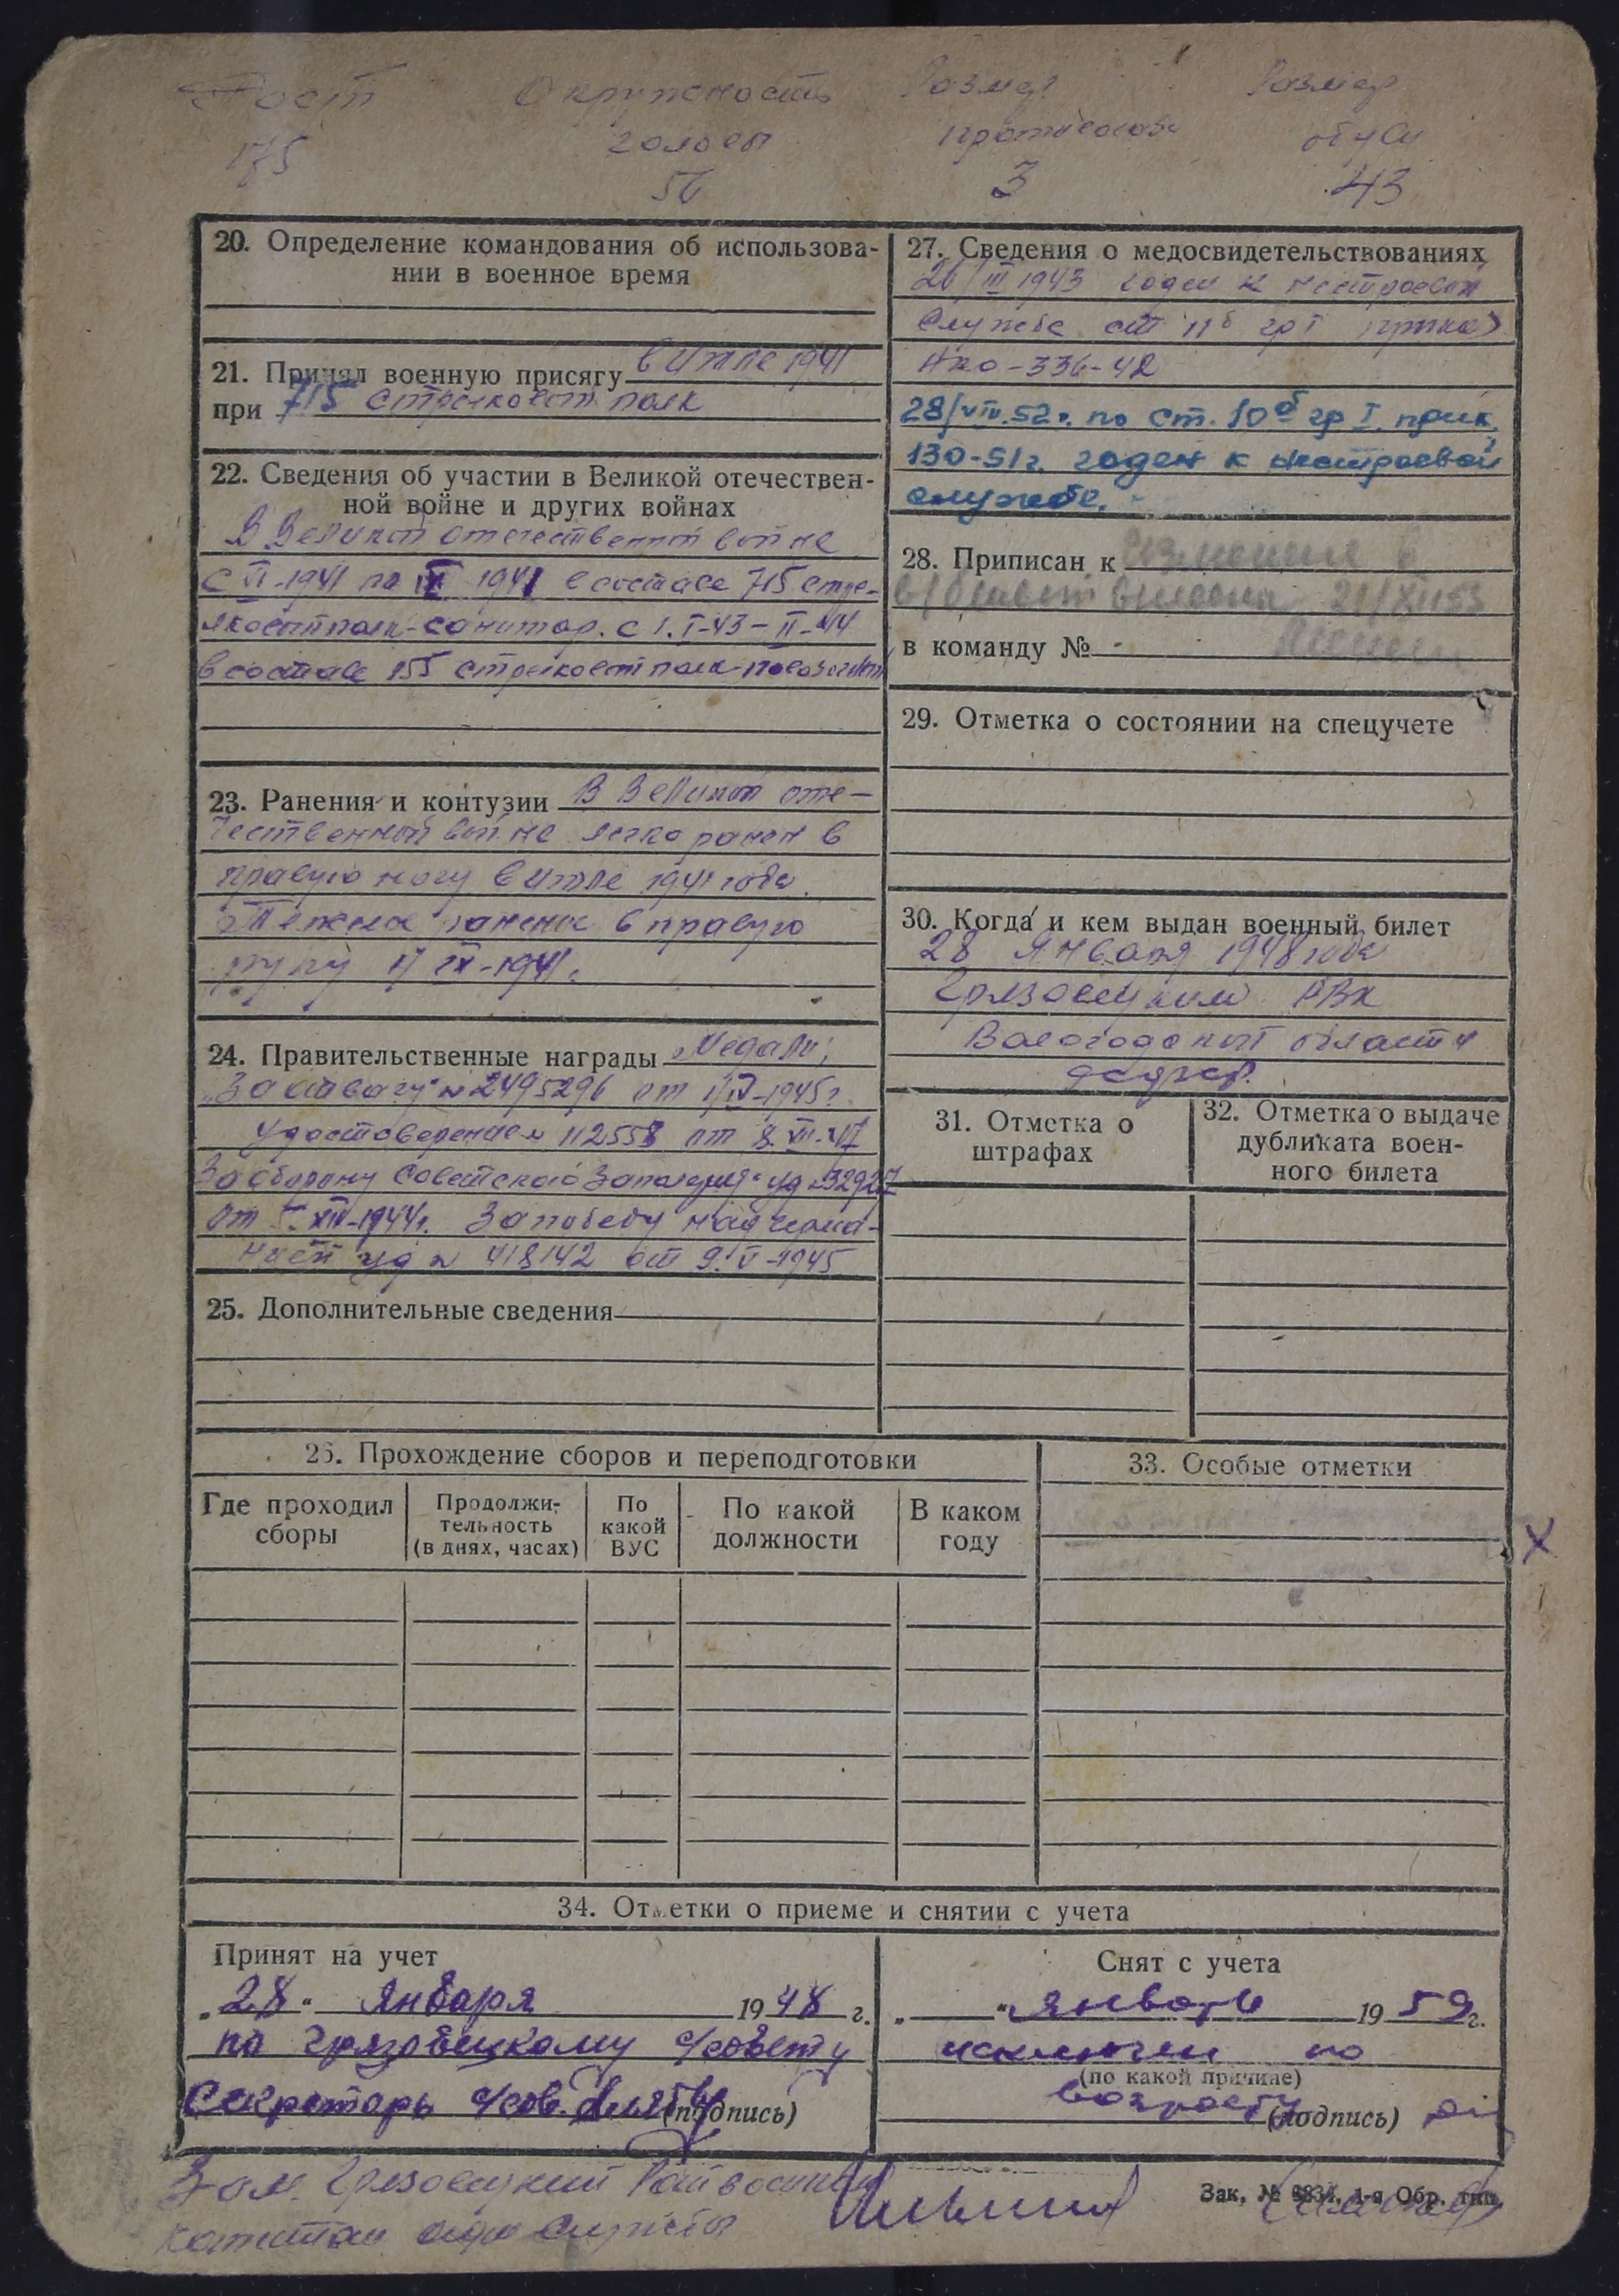 Рост Окружность Размер Размер
головы противогаза обуви
175 56 3 43
20. Определение командования об использова-
нии в военное время
21. Принял военную присягу в июле 1941
при 715 стрелковом полк
22. Сведения об участии в Великой отечествен-
ной войне и других войнах
В Великой отечественной войне
с VI-1941 по IX 1941 в составе 715 стре-
лковый полк-санитар. с 1.I-43-II-44
в составе 155 стрелковый полк-
23. Ранения и контузии В Великой оте-
чественной войне легко ранен в
правую ногу в июле 1941 года.
Тяжелое ранение в правую
руку 17 IX-1941.
24. Правительственные награды Медали;
„За отвагу" № 2495296 от 1/IV-1945г.
удостоверение № 112558 от 8.VII-47
За оборону Советского Заполярья" уд №32927
от 5.XII-1944г. За победу над герма-
нией уд № 418142 от 9.V-1945
25. Дополнительные сведения
27. Сведения о медосвидетельствованиях
26/III 1943 годен к нестроевой
службе ст 11б гр I приказ
НКО-336-42
28/VII.52г. по ст. 10б гр I. прик.
130-51г. годен к нестроевой
службе.
28. Приписан к
21/XII 53
в команду № -
29. Отметка о состоянии на спецучете
30. Когда и кем выдан военный билет
28 Января 1948 года
Грязовецким РВК
Вологодской области
31. Отметка о
штрафах
32. Отметка о выдаче
дубликата воен-
ного билета
26. Прохождение сборов и переподготовки
Где проходил
сборы
Продолжи-
тельность
(в днях, часах)
По
какой
ВУС
По какой
должности
В каком
году
33. Особые отметки
Х
34. Отметки о приеме и снятии с учета
Принят на учет
„28" Января 1948 г.
по Грязовецкому с/совету
Секретарь с/сов. (подпись)
Снят с учета
„ " январь 1959г.
исключен по
(по какой причине)
возрасту (подпись)
Зам. Грязовецкий Райвоенком
капитан адм службы
Зак, № 6834, 1-я Обр. тип.